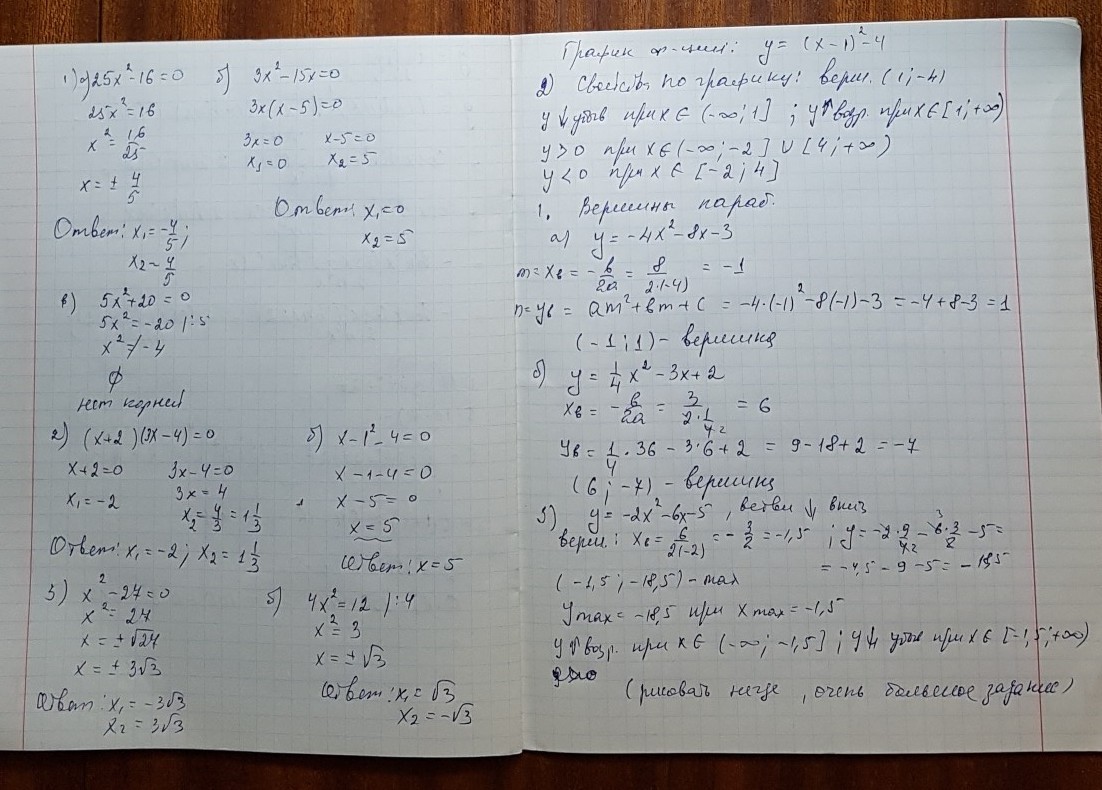 1) а) 25x² - 16 = 0
25x² = 16
x² = 16/25
x = ± 4/5
Ответ: x₁ = -4/5;
x₂ = 4/5
б) 3x² - 15x = 0
3x(x - 5) = 0
3x = 0 x - 5 = 0
x₁ = 0 x₂ = 5
Ответ: x₁ = 0
x₂ = 5
в) 5x² + 20 = 0
5x² = -20 |:5
x² ≠ -4
∅
нет корней
2) (x + 2)(3x - 4) = 0
x + 2 = 0 3x - 4 = 0
x₁ = -2 3x = 4
x₂ = 4/3 = 1 1/3
Ответ: x₁ = -2; x₂ = 1 1/3
б) x - 1² - 4 = 0
x - 1 - 4 = 0
x - 5 = 0
x = 5
Ответ: x = 5
3) x² - 27 = 0
x² = 27
x = ± √27
x = ± 3√3
Ответ: x₁ = -3√3
x₂ = 3√3
б) 4x² = 12 |:4
x² = 3
x = ± √3
Ответ: x₁ = √3
x₂ = -√3
График ф-ции: y = (x - 1)² - 4
2) Свойства по графику: верш. (1; -4)
y ↓ убыв при x ∈ (-∞; 1] ; y ↑ возр. при x ∈ [1; +∞)
y > 0 при x ∈ (-∞; -2] ∪ [4; +∞)
y < 0 при x ∈ [-2; 4]
1. Вершины параб.
а) y = -4x² - 8x - 3
m = xв = -в/2a = 8/2·(-4) = -1
n = yв = am² + вm + c = -4·(-1)² - 8(-1) - 3 = -4 + 8 - 3 = 1
(-1; 1) - вершина
б) y = 1/4 x² - 3x + 2
xв = -в/2a = 3/2·1/4 = 6
yв = 1/4 · 36 - 3·6 + 2 = 9 - 18 + 2 = -7
(6; -7) - вершина
3) y = -2x² - 6x - 5, ветви ↓ вниз
верш.: xв = 6/2(-2) = -3/2 = -1,5 ; y = -2·9/4 - 6·3/2 - 5 =
= -4,5 - 9 - 5 = -18,5
(-1,5; -18,5) - max
ymax = -18,5 при xmax = -1,5
y ↑ возр. при x ∈ (-∞; -1,5] ; y ↓ убыв при x ∈ [-1,5; +∞)
(рисовать негде, очень большое задание)